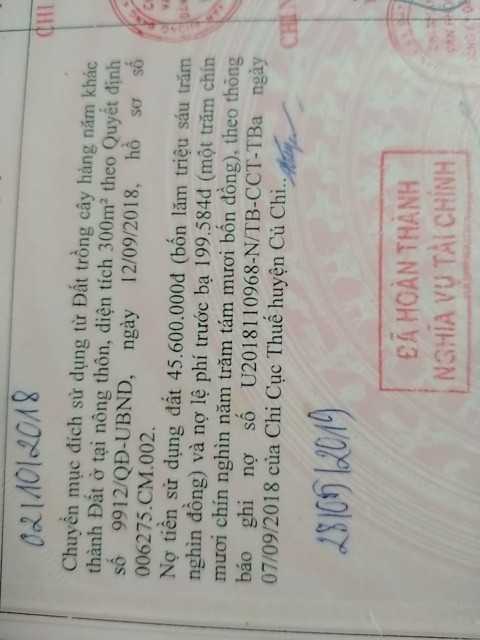 02/10/2018
Chuyển mục đích sử dụng từ Đất trồng cây hàng năm khác
thành Đất ở tại nông thôn, diện tích 300m² theo Quyết định
số 9912/QĐ-UBND, ngày 12/09/2018, hồ sơ số
006275.CM.002.
Nợ tiền sử dụng đất 45.600.000đ (bốn lăm triệu sáu trăm
nghìn đồng) và nợ lệ phí trước bạ 199.584đ (một trăm chín
mươi chín nghìn năm trăm tám mươi bốn đồng), theo thông
báo ghi nợ số U2018110968-N/TB-CCT-TBa ngày
07/09/2018 của Chi Cục Thuế huyện Củ Chi..
28/05/2019
ĐÃ HOÀN THÀNH
NGHĨA VỤ TÀI CHÍNH
CHI
CHI N